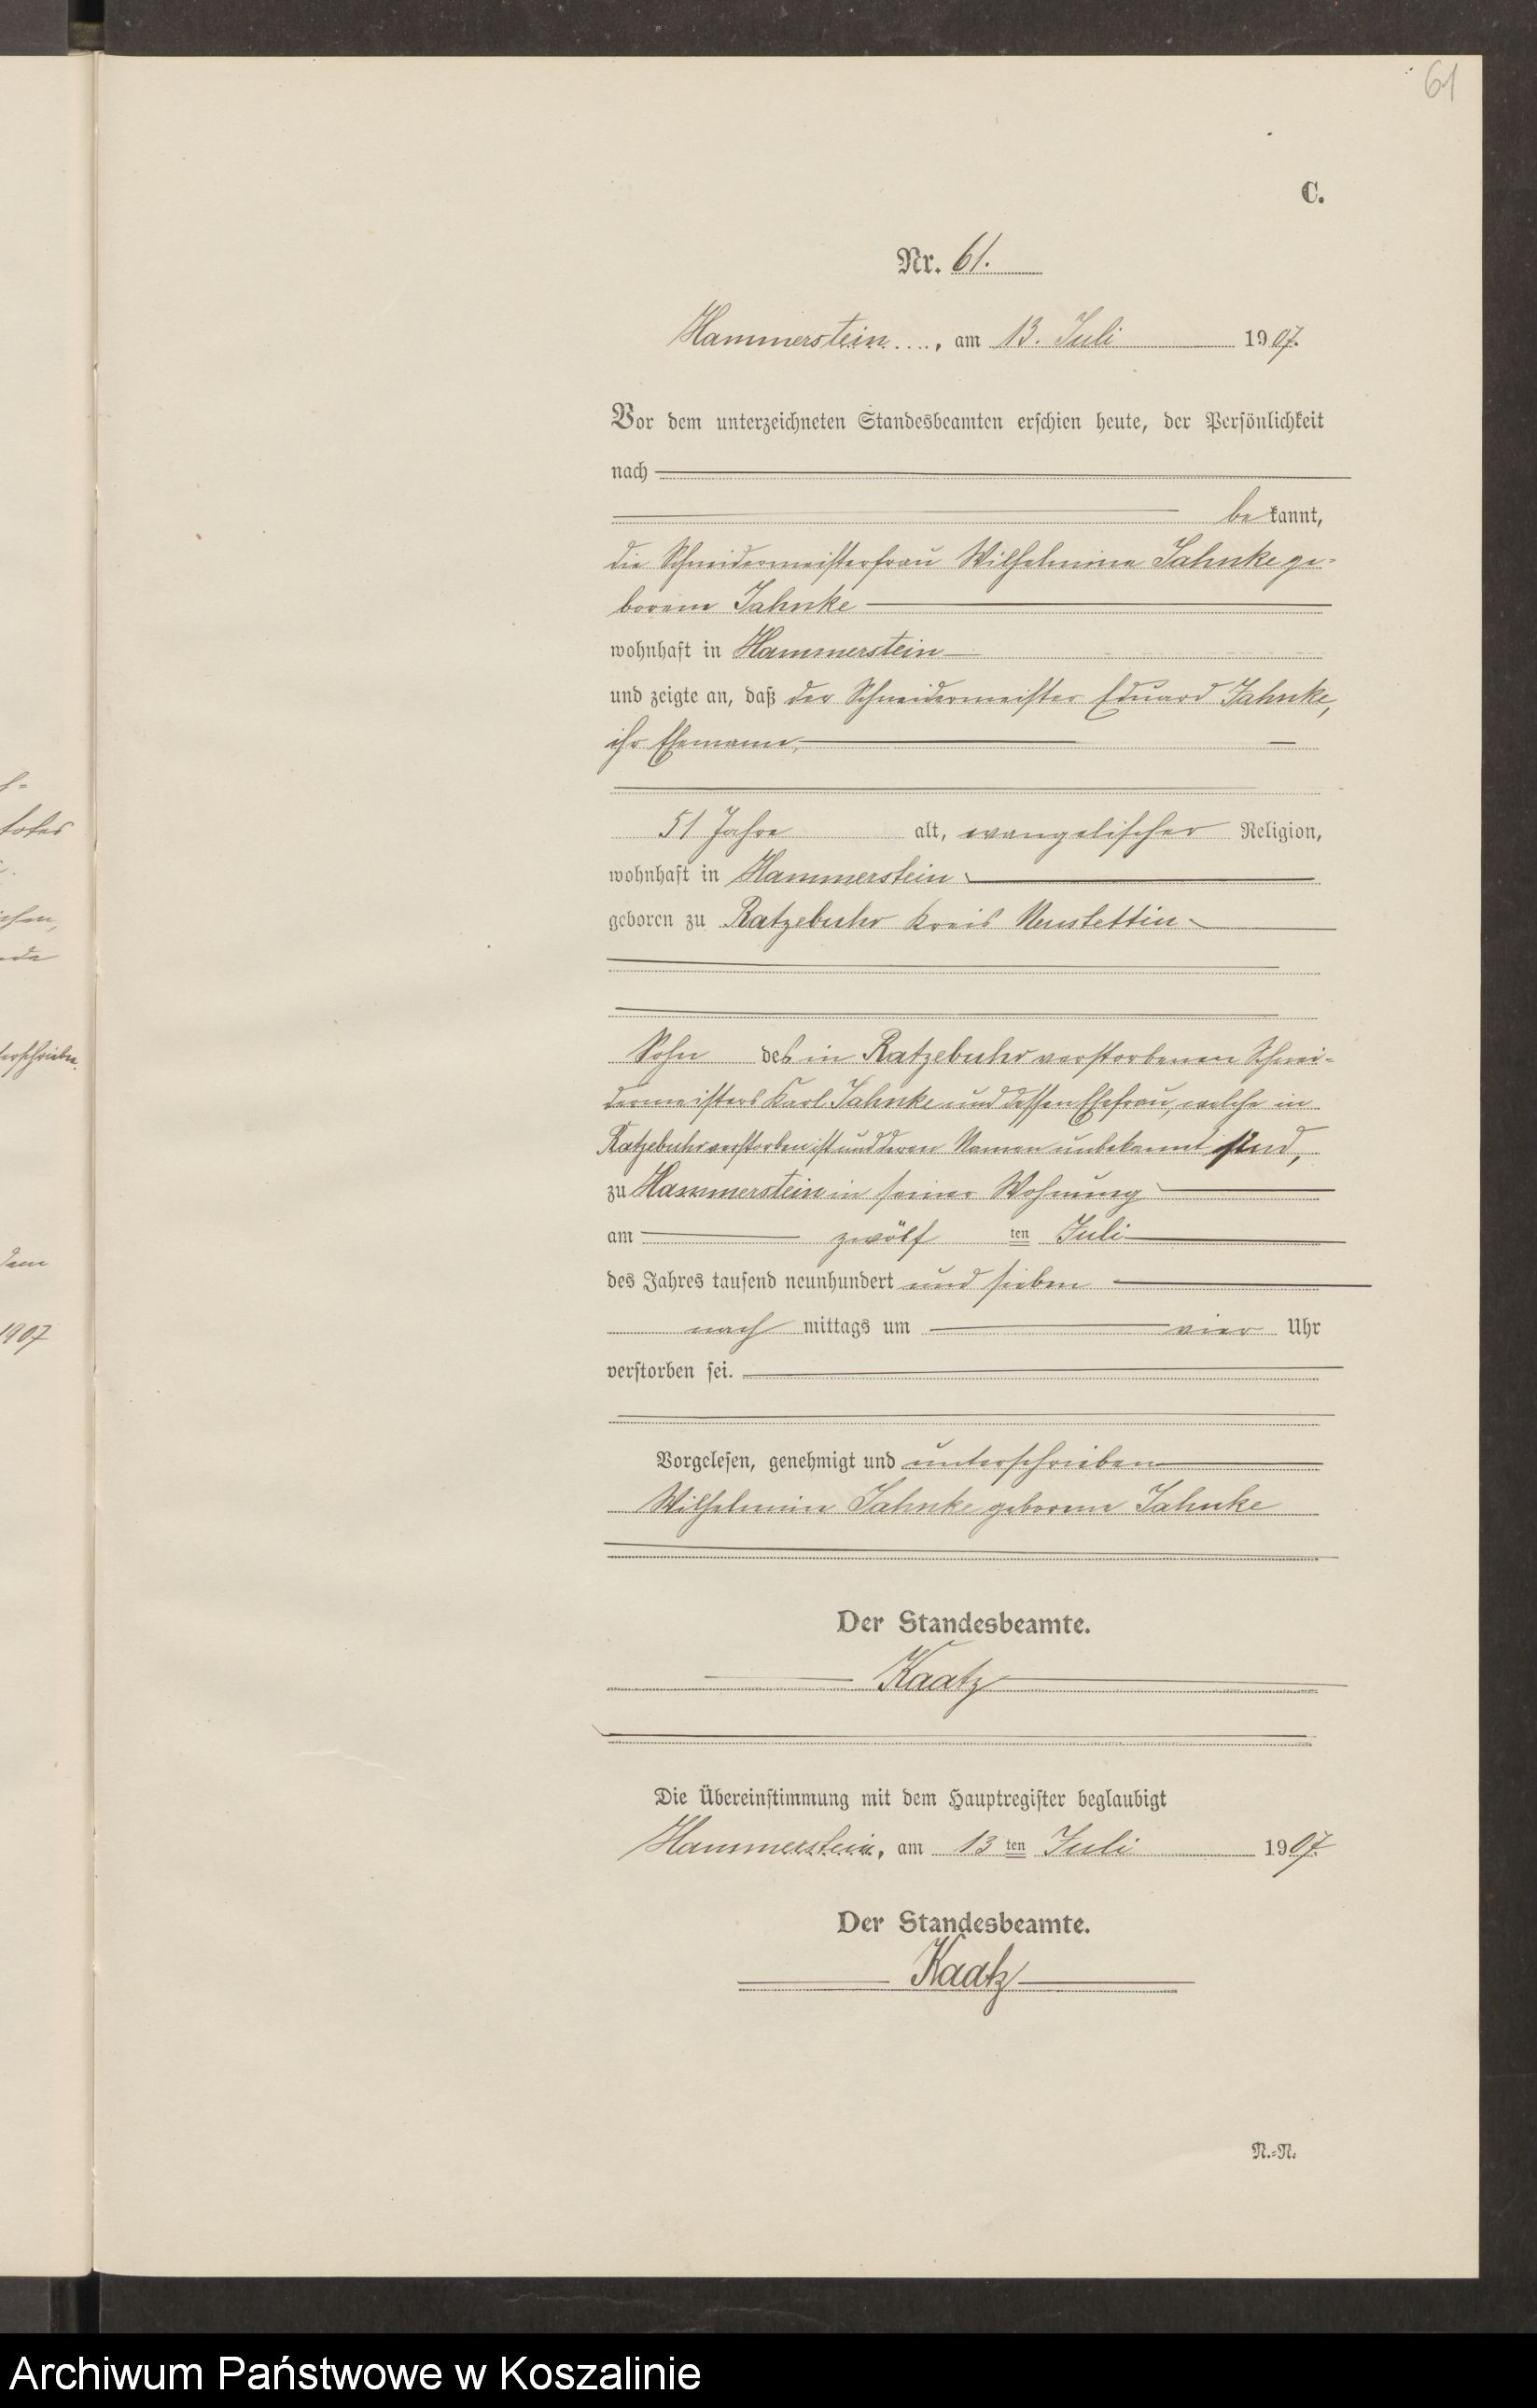 61
C.
Nr. 61.
Hammerstein ...., am 13. Juli 1907.
Vor dem unterzeichneten Standesbeamten erschien heute, der Persönlichkeit
nach
be kannt,
die Schneidermeisterfrau Wilhelmine Jahnke ge-
borene Jahnke
wohnhaft in Hammerstein
und zeigte an, daß der Schneidermeister Eduard Jahnke,
ihr Ehemann,
51 Jahre alt, evangelischer Religion,
wohnhaft in Hammerstein
geboren zu Ratzebuhr Kreis Neustettin
Sohn des in Ratzebuhr verstorbenen Schnei-
dermeisters Karl Jahnke und dessen Ehefrau, welche in
Ratzebuhr verstorben ist und deren Namen unbekannt sind,
zu Hammerstein in seiner Wohnung
am zwölf ten Juli
des Jahres tausend neunhundert und sieben
nach mittags um vier Uhr
verstorben sei.
Vorgelesen, genehmigt und unterschrieben
Wilhelmine Jahnke geborene Jahnke
Der Standesbeamte.
Kaatz
Die Übereinstimmung mit dem Hauptregister beglaubigt
Hammerstein, am 13 ten Juli 1907.
Der Standesbeamte.
Kaatz
N.-N.
1907
Archiwum Państwowe w Koszalinie